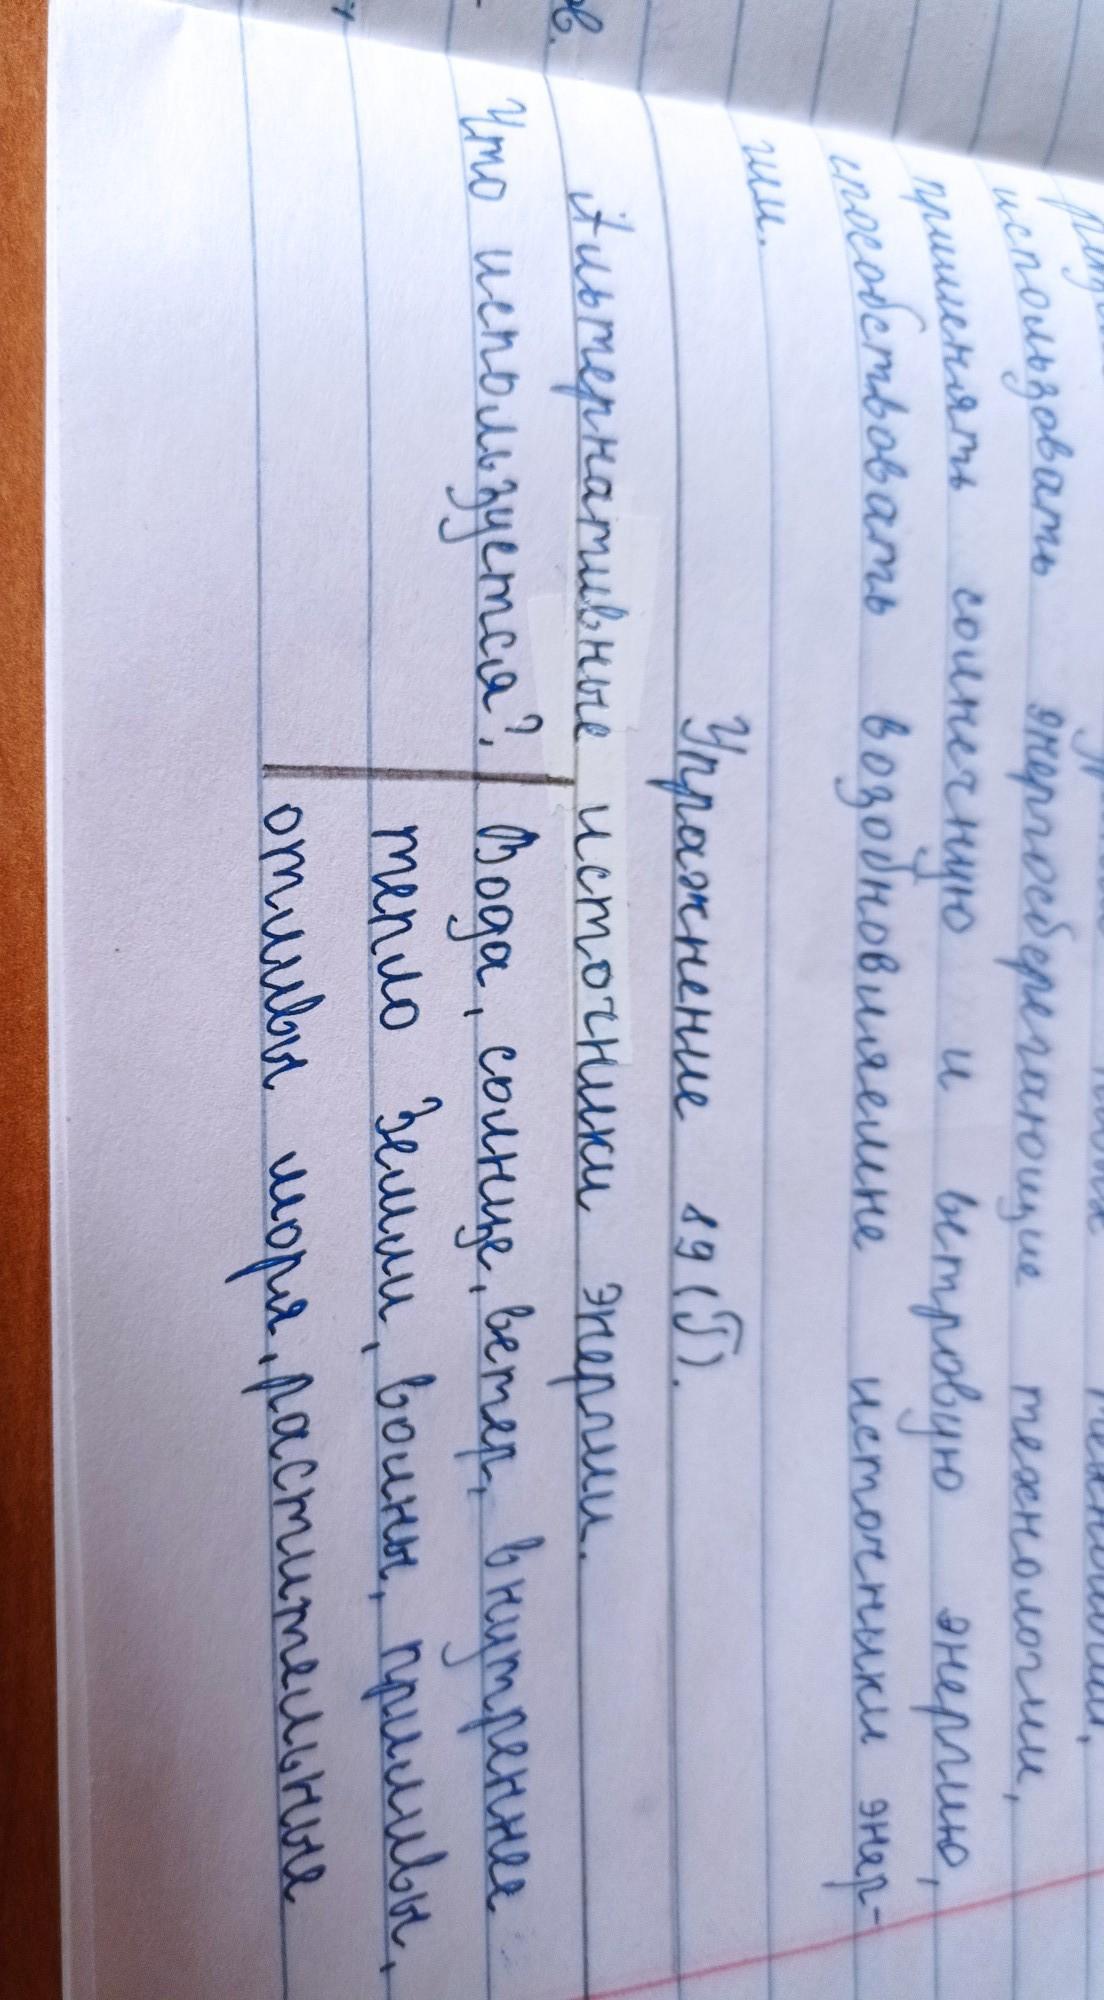 использовать энергосберегающие технологии,
применять солнечную и ветровую энергию,
способствовать возобновляемые источники энер-
гии.
Упражнение 89 (Г).
Альтернативные источники энергии.
Что используется? Вода, солнце, ветер, внутренее
тепло Земли, волны, приливы,
отливы моря, растительные